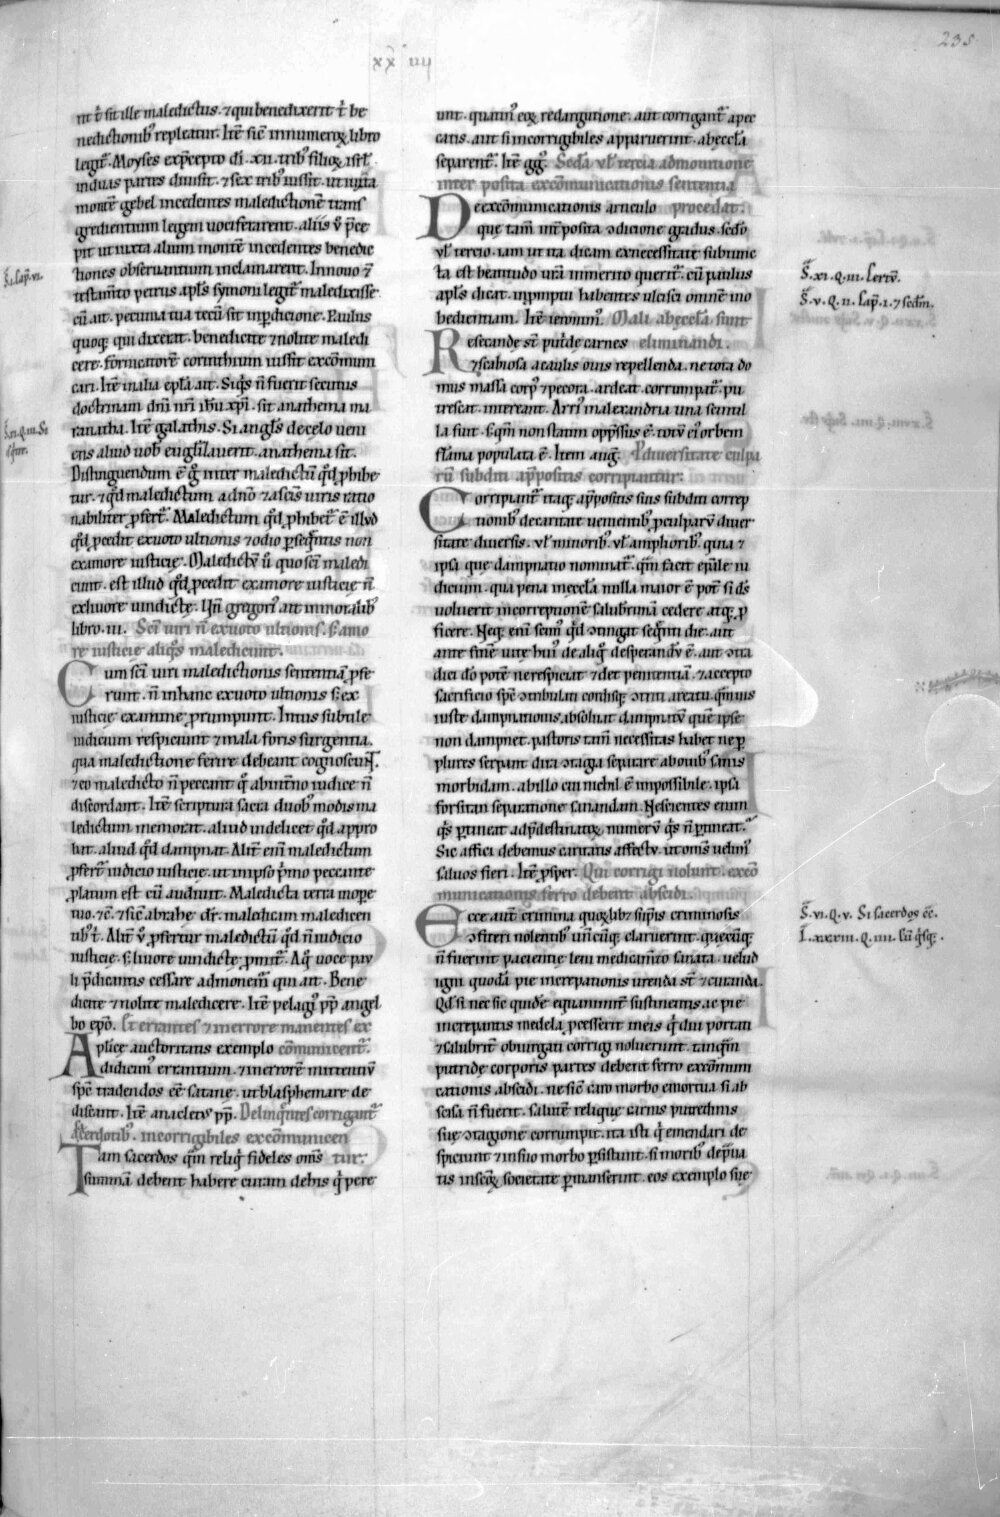 235
xx iiij
rit t̄ sit ille maledictus. ⁊ qui benedixerit t̄ be
nedictionib; repleatur. Itē sic̄ in numeroꝝ libro
legit̄. Moyses ex p̄cepto dī .xii. trib; filioꝝ isrl̄
in duas partes diuisit. ⁊ sex trib; iussit. ut iuxta
montē gebel incedentes maledictionē trans
gredientium legem uociferarent. aliis v̄ p̄ce
pit ut iuxta alium montē incedentes benedic
tiones obseruantium inclamarent. In nouo ⁊
testam̄to petrus apl̄s symoni legit̄ maledixisse
cū ait. pecunia tua tecū sit in p̄dicione. Paulus
quoq; qui dixerat. benedicite ⁊ nolite maledi
cere. fornicatorē corinthium iussit excōmuni
cari. Itē in alia ep̄la ait. Siq̄s n̄ fuerit secutus
doctrinam dn̄i nr̄i ih̄u xp̄i. sit anathema ma
ranatha. Itē galathis. Si angl̄s de cęlo ueni
ens aliud uob̄ euḡlizauerit. anathema sit.
Distinguendum ē ḡ inter maledictū qd̄ ꝓhibe
tur. ⁊ qd̄ maledictum a dn̄o ⁊ a sc̄is uiris ratio
nabiliter ꝓfert̄. Maledictum qd̄ ꝓhibet̄ ē illud
qd̄ ꝓcedit ex uoto ultionis ⁊ odio ꝑseq̄ntis non
ex amore iusticię. Maledictū u̅ quo sc̄i maledi
cunt. est illud qd̄ ꝓcedit ex amore iusticię n̄
ex liuore uindictę. Un̄ gregori᷒ ait in moralib;
libro .iii. Sc̄i uiri n̄ ex uoto ultionis. s; amo
re iusticię aliq̄s maledicunt.
Cum sc̄i uiri maledictionis sententiā ꝓfe
runt. n̄ in hanc ex uoto ultionis s; ex
iusticię examine ꝓrumpunt. Intus subtile
iudicium respiciunt ⁊ mala foris surgentia.
qua maledictione ferire debeant cognoscunt.
⁊ eo maledicto n̄ peccant q̄ ab int̄no iudice n̄
discordant. Itē scriptura sacra duob; modis ma
ledictum memorat. aliud uidelicet qd̄ appro
bat. aliud qd̄ dampnat. Alit̄ enī maledictum
ꝓfert̄ iudicio iusticię. ut in ipso p̄mo peccante
ꝓlatum est cū audiuit. Maledicta terra in ope
tuo. ⁊c̄. ⁊ sic̄ abrahe dr̄. maledicam maledicen
tib; t̄. Alit̄ v̄ ꝓfertur maledictū qd̄ n̄ iudicio
iusticię. s; liuore uindictę ꝓmit̄. A q̄ uoce pau
li p̄dicantis cessare admonem̄ qui ait. Bene
dicite ⁊ nolite maledicere. Itē pelagi᷒ pp̄ angel
bo ep̄o. Et errantes ⁊ in errore manentes ex
Aplicę auctoritatis exemplo cōmunicent̄.
didicim᷒ errantium. ⁊ in errorē mittentiū
spē tradendos eē satanę. ut blasphemare de
discant. Itē anaclet᷒ pp̄. Delinq̄ntes corrigant̄
a sacerdotib;. incorrigibiles excōmunicen
Tam sacerdos q̄m reliq̄ fideles om̄s tur.
summā debent habere curam de his q̄ pere
unt. quatin᷒ eoꝝ redargutione. aut corrigant̄ a pec
catis. aut si incorrigibiles apparuerint. ab ęccl̄a
separent̄. Itē gḡ. Sc̄da ul̄ tercia admonitione
inter posita excōmunicationis sententia
De excōmunicationis articulo procedat.
que tam̄ int̄posita ɔdicione gradus. sc̄do
ul̄ tercio. iam ut ita dicam ex necessitate subiunc
ta est beatitudo ur̄a in merito querit̄. cū paulus
apl̄s dicat. in pmptu habentes ulcisci omnē ino
bedientiam. Itē ieronim᷒. Mali ab ęccl̄a sunt
Resecandę st̄ putr̄de carnes eliminandi.
⁊ scabiosa a caulis ouis repellenda. ne tota do
mus massa corp᷒ ⁊ pecora. ardeat. corrumpat̄. pu
trescat. intereant. Arri᷒ in alexandria una scintil
la fuit. s; q̄m non statim opp̄ssus ē. totū ei᷒ orbem
flāma populata ē. Item auḡ. P diuersitate culpa
rū subditi a p̄positis corripiantur.
Corripiant̄ itaq; a p̄positis suis subditi correp
tionib; de caritate uenientib; ꝓ culparū diuer
sitate diuersis. ul̄ minorib; ul̄ amplioribꝫ. quia ⁊
ipsa que dampnatio nominat̄. q̄m facit ep̄ale iu
dicium. qua pena in ęccl̄a nulla maior ē. pot̄ si d̄s
uoluerit in correptionē saluberrimā cedere atq; ꝓ
ficere. Neq; enī scim᷒ qd̄ ɔtingat seq̄nti die. aut
ante finē uitę hui᷒ de aliq̄ desperandū ē. aut ɔtra
dici dō potē ne respiciat ⁊ det penitentiā. ⁊ accepto
sacrificio sp̄c ɔtribulati cordisq; ɔtriti a reatu. q̄mus
iuste dampnationis absoluat dampnatū. quē ipse
non dampnet. pastoris tam̄ necessitas habet ne ꝑ
plures serpant dira ɔtagia separare ab ouib; sanis
morbidam. ab illo cui nichil ē impossibile. ipsa
forsitan separatione sanandam. Nescientes enim
q̄s ꝑtineat ad p̄destinatoꝝ numerū q̄s n̄ ꝑtineat.
Sic affici debemus caritatis affectu. ut om̄s uelim᷒
saluos fieri. Itē ꝓsper. Qui corrigi nolunt. excō
municationis ferro debent abscidi.
Ecce aut̄ crimina quoꝝlib; si ip̄is criminosis
ɔfiteri nolentib; un̄cūq; claruerint. quęcūq;
n̄ fuerint patientię leni medicam̄to sanata. uelud
igni quodā pię increpationis urenda st̄ ⁊ curanda.
Qd̄ si nec sic quidē equanimit̄ sustinentis. ac pie
increpantis medela ꝓcesserit in eis q̄ diu portati
⁊ salubrit̄ obiurgati corrigi noluerunt. tanq̄m
putridę corporis partes debent ferro excōmuni
cationis abscidi. ne sic̄ caro morbo emortua si ab
scisa n̄ fuerit. salutē reliquę carnis putredinis
suę ɔtagione corrumpit. ita isti q̄ emendari de
spiciunt ⁊ in suo morbo ꝑsistunt. si morib; dep̄ua
tis in sc̄oꝝ societate ꝑmanserint. eos exemplo suę
S̄. i. Cap̄. vi.
S̄. xi. Q. iii. Si
S̄. xi. Q. iii. Certū.
S̄. v. Q. ii. Cap̄. i. ⁊ sedm.
S̄. vi. Q. v. Si sacerdos ēē.
I. xxxiii. Q. iiii. Cū q̄sq;.